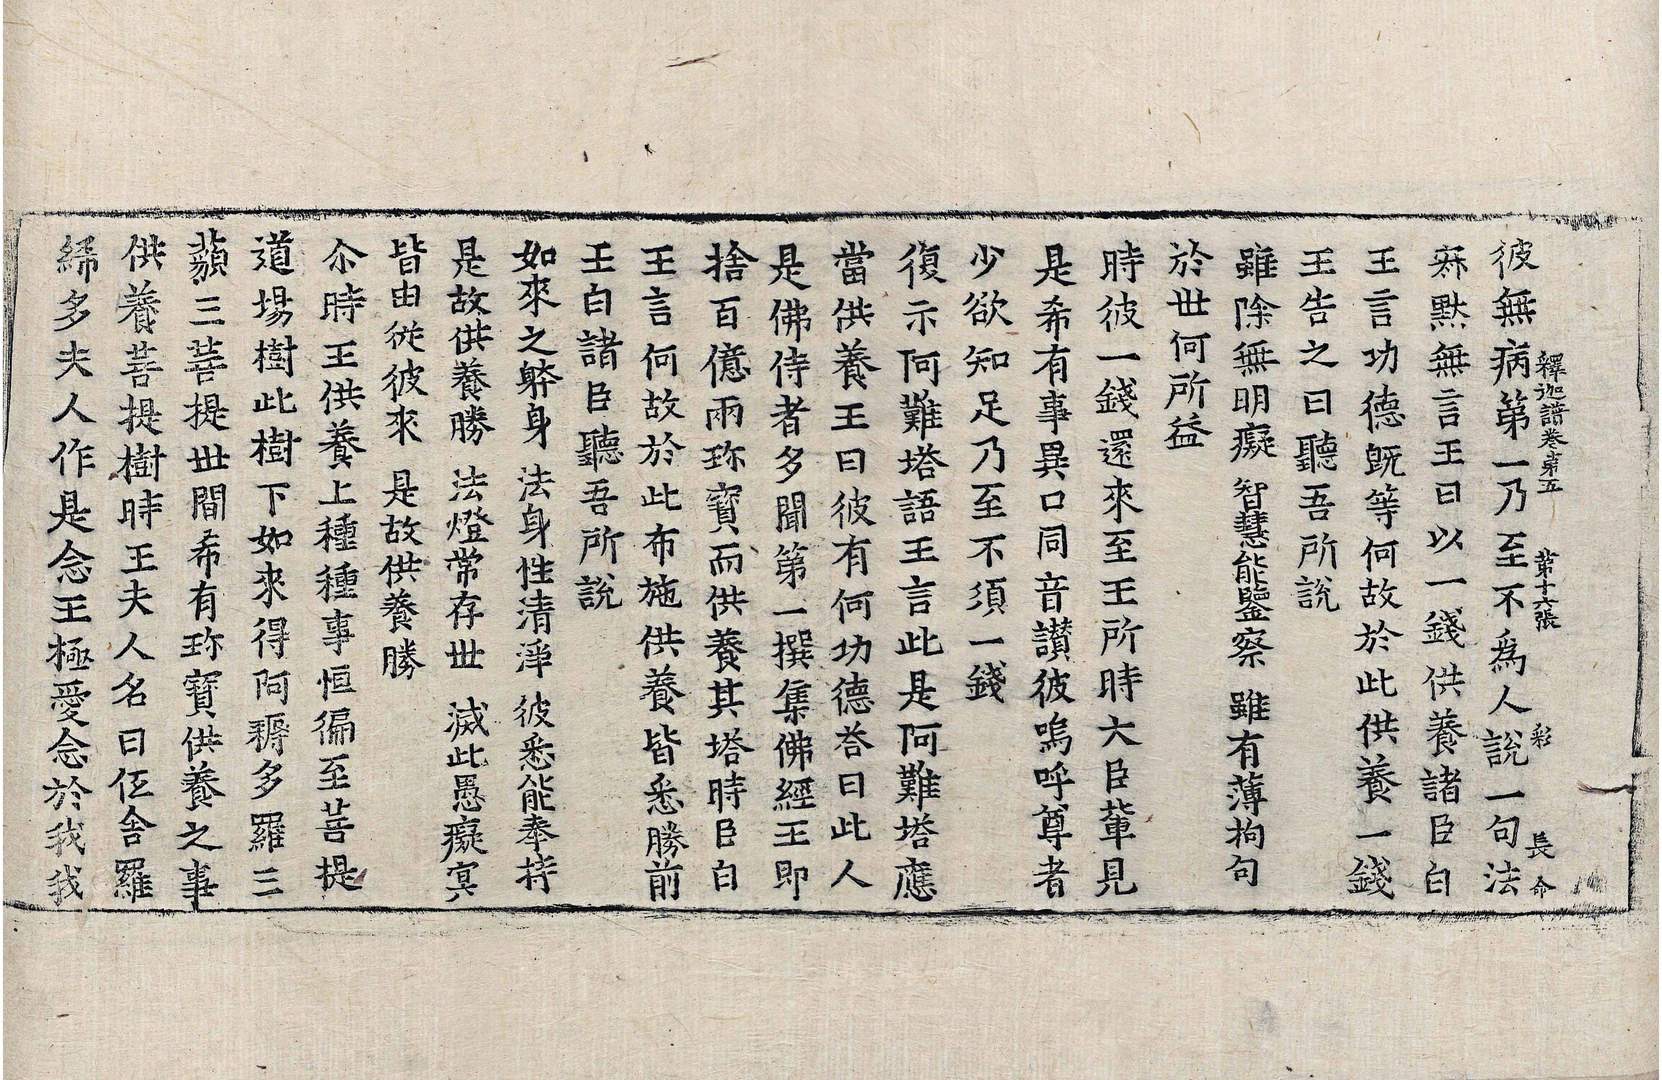 彼無病第一乃至不為人說一句法
釋迦譜卷第五 第十六張 彩 長命
寂默無言王曰以一錢供養諸臣白
王言功德既等何故於此供養一錢
王告之曰聽吾所說
雖除無明癡 智慧能鑒察 雖有薄拘句
於世何所益
時彼一錢還來至王所時大臣輩見
是希有事異口同音讃彼嗚呼尊者
少欲知足乃至不須一錢
復示阿難塔語王言此是阿難塔應
當供養王曰彼有何功德荅曰此人
是佛侍者多聞第一撰集佛經王即
捨百億兩珎寶而供養其塔時臣白
王言何故於此布施供養皆悉勝前
王白諸臣聽吾所說
如來之躰身 法身性清淨 彼悉能奉持
是故供養勝 法燈常存世 滅此愚癡冥
皆由從彼來 是故供養勝
尒時王供養上種種事恒徧至菩提
道場樹此樹下如來得阿耨多羅三
藐三菩提世間希有珎寶供養之事
供養菩提樹時王夫人名曰低舍羅
絺多夫人作是念王極愛念於我我